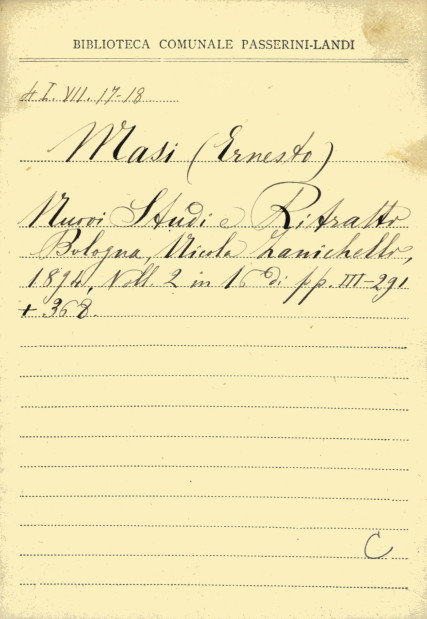 BIBLIOTECA COMUNALE PASSERINI-LANDI
4 I. VII. 17-18
Masi (Ernesto)
Nuovi Studi e Ritratti
Bologna, Nicola Zanichelli,
1894, Voll. 2 in 16° di pp. III-291
+ 368.
C